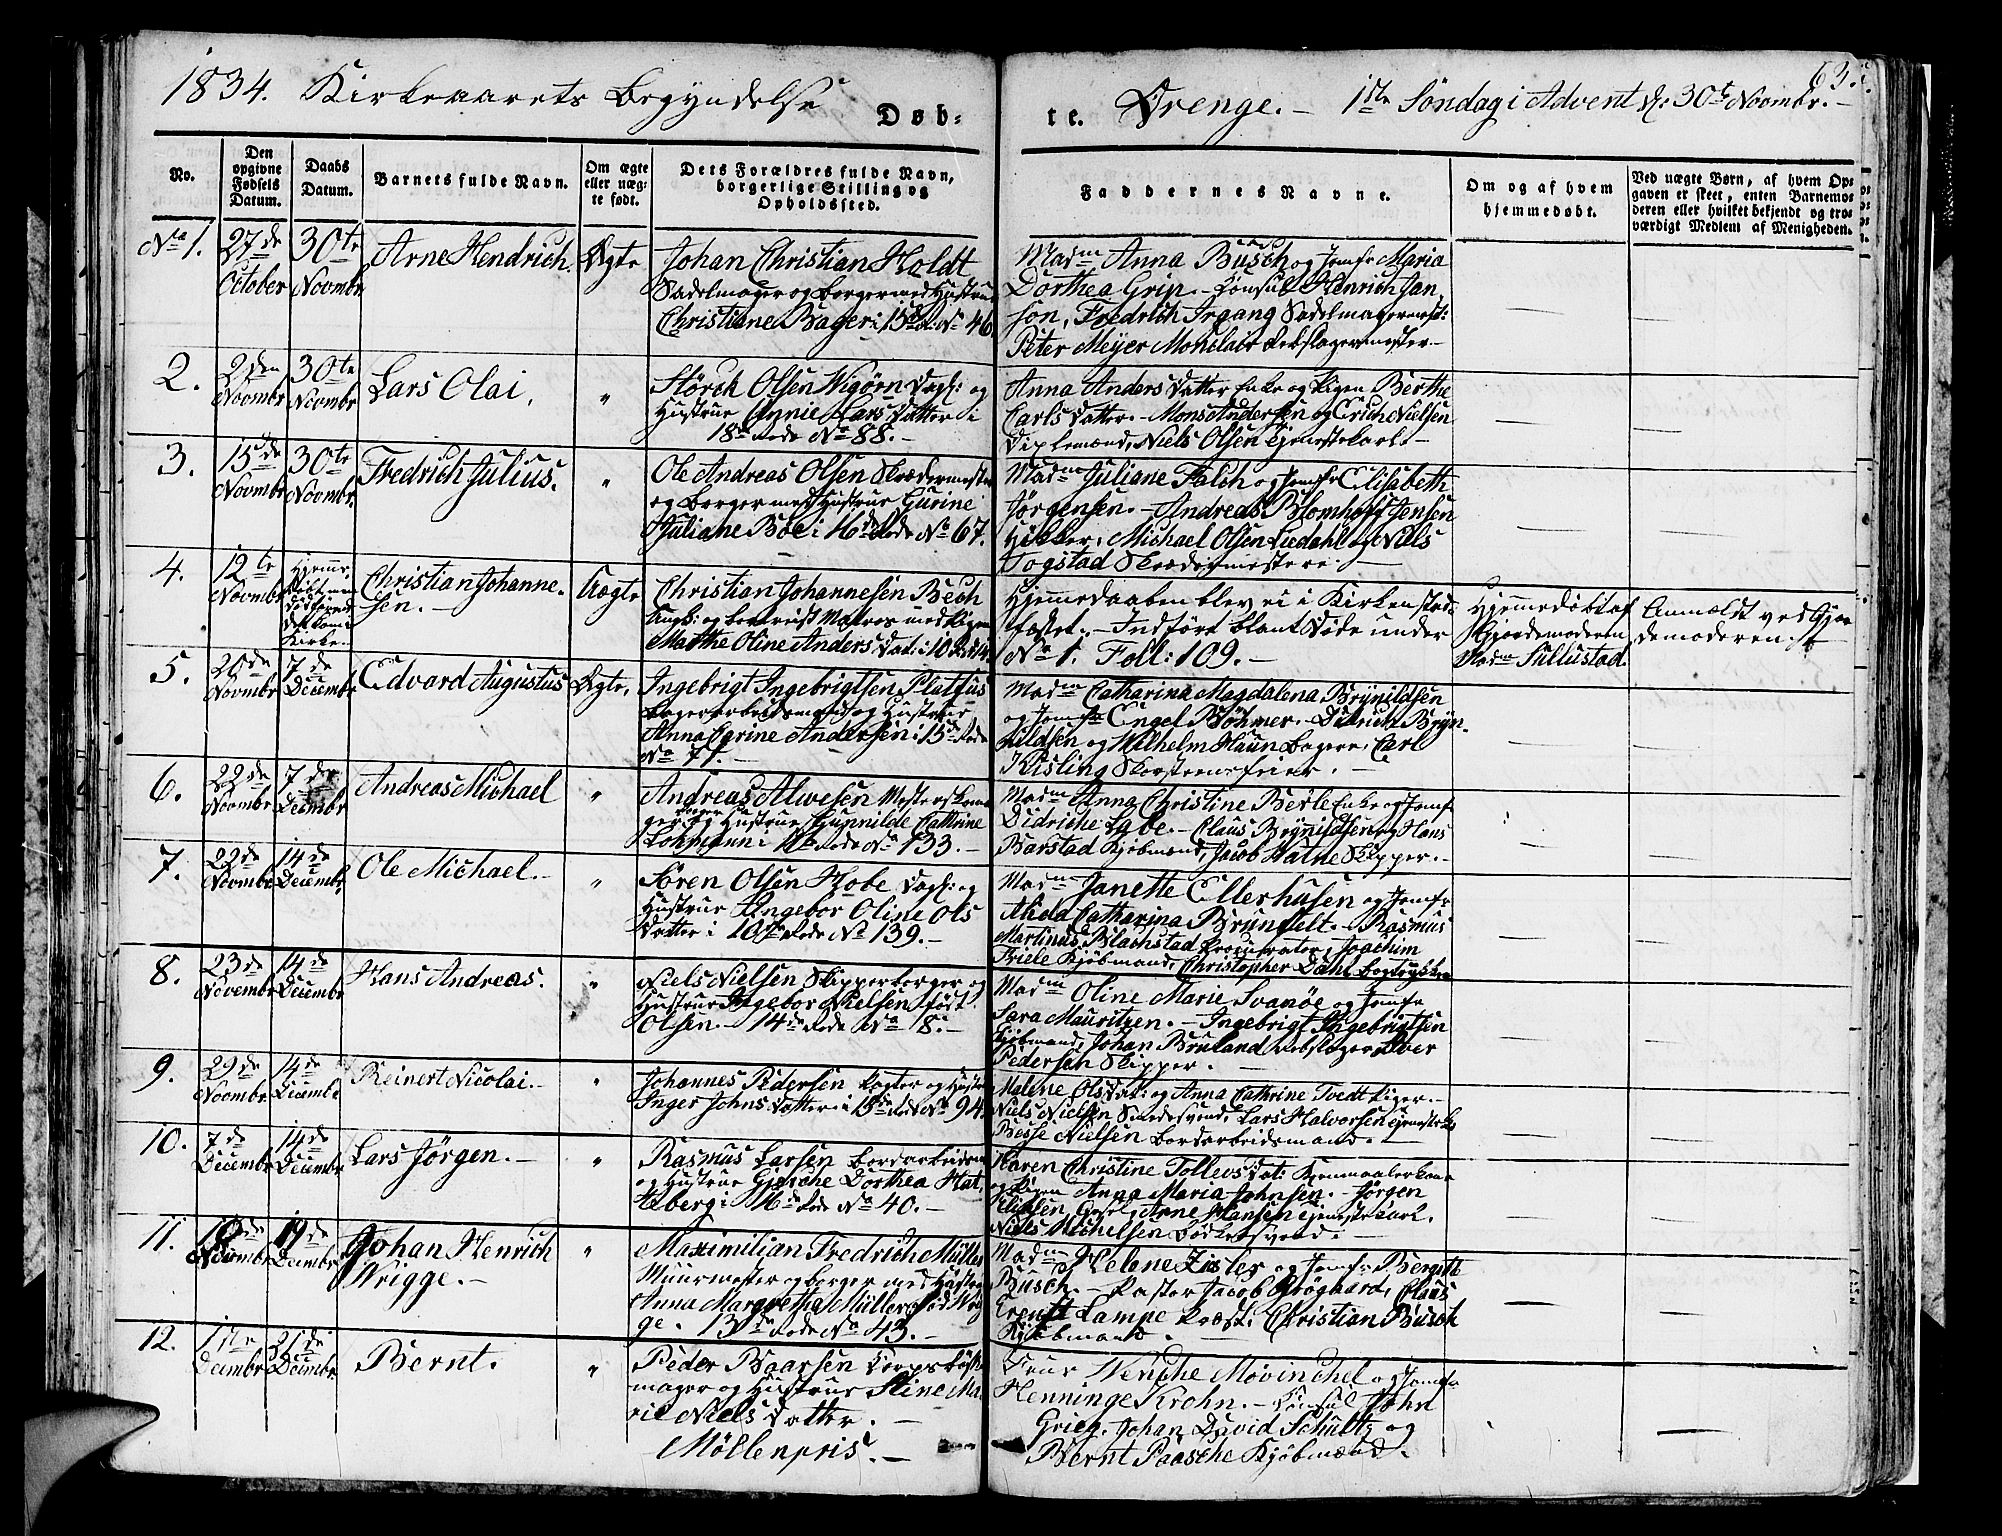 1834. Kirkeaarets Begyndelse
Døb-
te. Drenge. - 1ste Søndag i Advent d: 30te Novmbr. -
63.
No.
Den
opgivne
Fødsels
Datum.
Daabs
Datum.
Barnets fulde Navn.
Om ægte
eller uæg-
te født.
Dets Forældres fulde Navn,
borgerlige Stilling og
Opholdssted.
Faddernes Navne.
Om og af hvem
hjemmedøbt.
Ved uægte Børn, af hvem Op-
gaven er skeet, enten Barnemo-
deren eller hvilket bekjendt og tro-
værdigt Medlem af Menigheden.
No 1.
27de
October
30te
Novmbr
Arne Hendrich.
Ægte
Johan Christian Holdt
Sadelmager og Borger med Hustrue
Christiane Bager i 15de R: No 46
Madm Anna Busch og Jomfr Maria
Dorthea Grip. - Consul Henrich Jan
son, Fredrich Irgang Sadelmagermest:
Peter Meyer Monclair Rebslagermester -
2.
2den
Novmbr
30te
Novmbr
Lars Olai,
"
Størch Olsen Wigørn Dagk: og
Hustrue Annie Lars Datter i
18de Rode No 88. -
Anna Anders Datter Enke og Pigen Berthe
Carls Datter. - Mons Andersen og Erich Nielsen
Niels Olsen Tjenestekarl. -
3.
15de
Novmbr
30te
Novmbr.
Fredrich Julius.
"
Ole Andreas Olsen Skrædermester
og Borger med Hustrue Gurine
Juliane Böe i 16de Rode No 67.
Madm Juliane Falch og Jomfr Elisabeth
Jørgensen. - Andreas Blomhoff Jensen
Høkker, Michael Olsen Liedahl og Niels
Togstad Skrædermestere. -
4.
12te
Novmbr
Hjemme-
døbt
Kirke. -
Christian Johanne-
sen. -
Uægte
Christian Johannesen Bech
Ungk: og Matros med Pigen
Marthe Oline Anders Dat: i 10 R:
Hjemmedaaben blev ei i Kirken stad-
fæstet. - Indført blant Døde under
No 1. Foll: 109. -
Hjemmedøbt af
Gjordemoderen
Madm Sullustad.
Anmeldt ved Gjor
demoderen.
5.
20de
Novmbr
7de
Decembr
Edvard Augustus
Ægte,
Ingebrigt Ingebrigtsen Platfus
Bagerarbeidsmand og Hustrue
Anna Carine Andersen i 15de Rode
No 71. -
Madm Catharina Magdalena Brynildsen
og Jomfr Engel Böhmer. - Didrich Bryn-
nildsen og Wilhelm Haun Bagere, Carl
Kisling Skorsteensfeier. -
6.
22de
Novmbr
7de
Decmbr
Andreas Michael
"
Andreas Alwesen
Hustrue Gunnilde Cathrine
Lohmann i Rode No 133. -
Madm Anna Christine Berle Enke og Jomfr
Didriche Labe. - Claus Brynildsen og Hans
Barstad Kjøbmænd, Jacob Hatne Skipper. -
7.
22de
Novmbr
14de
Decembr
Ole Michael. -
"
Søren Olsen Hobe Dagk: og
Hustrue Ingebor Oline Ols
Datter i 10de Rode No 139. -
Madm Janette Ellerhusen og Jomfr
Alida Catharina Brunfelt. - Rasmus
Martinus Blachstad Procurator, Joachim
Friele Kjøbmand, Christopher Dahl Bogtrykker
8.
23de
Novembr
14de
Decembr
Hans Andreas.
"
Niels Nielsen Skipperborger og
Hustrue Ingebor Nielsen født
Olsen. - 14de Rode No 18. -
Madm Oline Marie Svanöe og Jomfr
Sara Mauritzen. - Ingebrigt Ingebrigtsen
Kjøbmand, Johan Bruland Rebslager, Iver
Pedersen Skipper. -
9.
29de
Novmbr
14de
Decembr
Reinert Nicolai. -
"
Johannes Pedersen Rogter og Hustrue
Inger Johns Datter i 15de Rode No 94.
Malene Ols Dat: og Anna Cathrine Tvedt Piger. -
Niels Nielsen Smedesvend, Lars Halvorsen
Besse Nielsen Bordarbeidsmand. -
10.
7de
Decembr
14de
Decembr
Lars Jørgen. -
"
Rasmus Larsen Bordarbeidsm
og Hustrue Gjerche Dorthea Hat
leberg i 16de Rode No 40. -
Karen Christine Tollevs Dat: Kornmaalerkone
og Pigen Anna Maria Johnsen. - Jørgen
Arne Hansen Tjenestekarl,
Niels Michelsen Bødkersvend. -
11.
18de
Novmbr
19de
Decmbr
Johan Henrich
Wrigge. -
"
Maximilian Fredrich Müller
Muurmester og Borger med Hustrue
Anna Margretha Müller fød Wrig
ge. 13de Rode No 43. -
Madm Helene Zisler og Jomfr Bergitte
Busch. - Pastor Jacob Grøgaard, Claus
Ernst Lampe Præst, Christian Busch
Kjøbmand. -
12.
1ste
Decmbr
21de
Decmbr
Bernt.
"
Peder Baarsen Corpsbøsse
mager og Hustrue Stine Ma-
rie Niels Datter. -
Möllenpris. -
Frue Weriche Mowinchel og Jomfr
Henninge Krohn. - Consul John
Grieg, Johan David Schultz og
Bernt Paasche Kjøbmænd.